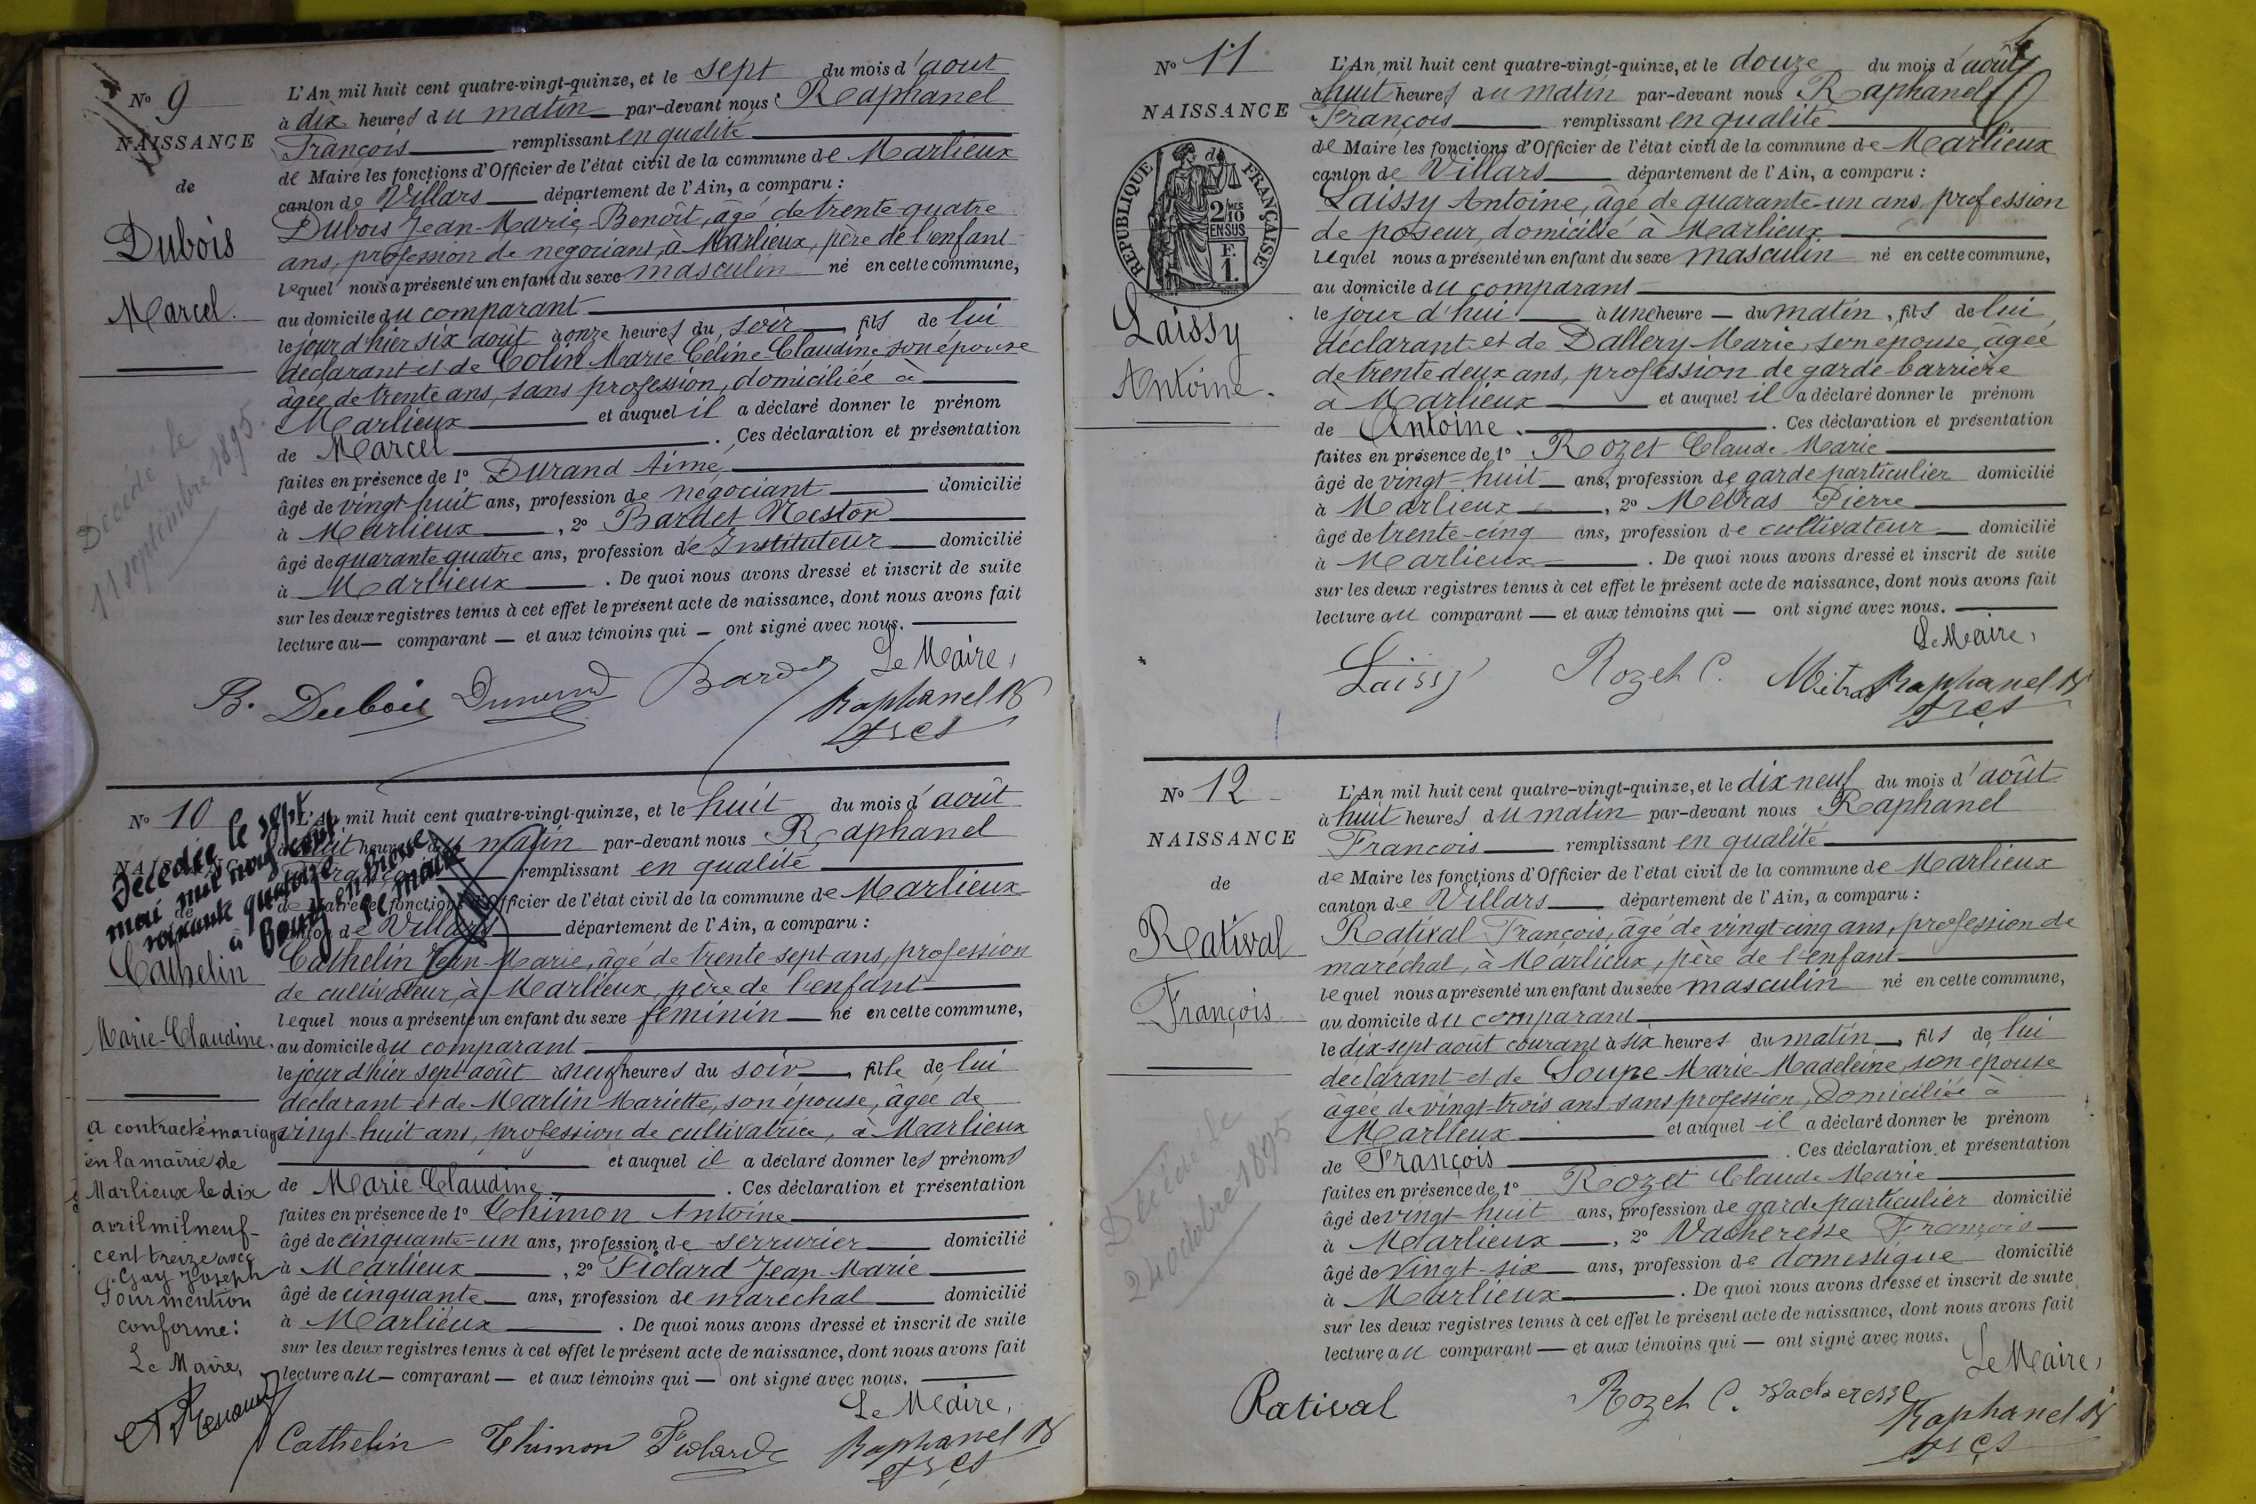 N° 9
NAISSANCE
de
Dubois
Marcel.
Décédé le
11 septembre 1895.
L'An mil huit cent quatre-vingt-quinze, et le sept du mois d'août
à dix heures du matin par-devant nous Raphanel
François remplissant en qualité
de Maire les fonctions d'Officier de l'état civil de la commune de Marlieux
canton de Villars département de l'Ain, a comparu :
Dubois Jean-Marie Benoît, âgé de trente-quatre
ans, profession de négociant, à Marlieux, père de l'enfant
lequel nous a présenté un enfant du sexe masculin né en cette commune,
au domicile du comparant
le jour d'hier six août à onze heures du soir, fils de lui
déclarant et de Colin Marie Céline Claudine son épouse
âgée de trente ans, sans profession, domiciliée à
Marlieux et auquel il a déclaré donner le prénom
de Marcel. Ces déclaration et présentation
faites en présence de 1° Durand Aimé
âgé de vingt-huit ans, profession de négociant domicilié
à Marlieux, 2° Bardet Nestor
âgé de quarante-quatre ans, profession de Instituteur domicilié
à Marlieux. De quoi nous avons dressé et inscrit de suite
sur les deux registres tenus à cet effet le présent acte de naissance, dont nous avons fait
lecture au comparant et aux témoins qui ont signé avec nous.
Le Maire,
B. Dubois Durand Bardet Raphanel
N° 10
NAISSANCE
de
Cathelin
Marie-Claudine.
Décédée le sept
mai mil neuf cent
soixante quatorze
à Bourg en Bresse
Le maire
a contracté mariage
en la mairie de
Marlieux le dix
avril mil neuf-
cent treize avec
Guy Joseph
Pour mention
conforme :
Le Maire,
L'An mil huit cent quatre-vingt-quinze, et le huit du mois d'août
à huit heures du matin par-devant nous Raphanel
François remplissant en qualité
de Maire les fonctions d'Officier de l'état civil de la commune de Marlieux
canton de Villars département de l'Ain, a comparu :
Cathelin Jean-Marie, âgé de trente sept ans, profession
de cultivateur, à Marlieux, père de l'enfant
lequel nous a présenté un enfant du sexe féminin né en cette commune,
au domicile du comparant
le jour d'hier sept août à neuf heures du soir, fille de lui
déclarant et de Marlin Mariette, son épouse, âgée de
vingt-huit ans, profession de cultivatrice, à Marlieux
et auquel il a déclaré donner les prénoms
de Marie Claudine. Ces déclaration et présentation
faites en présence de 1° Thimon Antoine
âgé de cinquante-un ans, profession de serrurier domicilié
à Marlieux, 2° Fiolard Jean-Marie
âgé de cinquante ans, profession de maréchal domicilié
à Marlieux. De quoi nous avons dressé et inscrit de suite
sur les deux registres tenus à cet effet le présent acte de naissance, dont nous avons fait
lecture au comparant et aux témoins qui ont signé avec nous.
Le Maire,
Cathelin Thimon Fiolard Raphanel
N° 11
NAISSANCE
RÉPUBLIQUE FRANÇAISE
2/10 MES
EN SUS
F.
1.
Laissy
Antoine.
L'An mil huit cent quatre-vingt-quinze, et le douze du mois d'août
à huit heures du matin par-devant nous Raphanel
François remplissant en qualité
de Maire les fonctions d'Officier de l'état civil de la commune de Marlieux
canton de Villars département de l'Ain, a comparu :
Laissy Antoine, âgé de quarante-un ans, profession
de poseur, domicilié à Marlieux
lequel nous a présenté un enfant du sexe masculin né en cette commune,
au domicile du comparant
le jour d'hui à une heure du matin, fils de lui
déclarant et de Dallery Marie, son épouse, âgée
de trente-deux ans, profession de garde-barrière
à Marlieux et auquel il a déclaré donner le prénom
de Antoine. Ces déclaration et présentation
faites en présence de 1° Rozet Claude Marie
âgé de vingt-huit ans, profession de garde particulier domicilié
à Marlieux, 2° Métras Pierre
âgé de trente-cinq ans, profession de cultivateur domicilié
à Marlieux. De quoi nous avons dressé et inscrit de suite
sur les deux registres tenus à cet effet le présent acte de naissance, dont nous avons fait
lecture au comparant et aux témoins qui ont signé avec nous.
Le Maire,
Laissy Rozet C. Métras Raphanel
N° 12
NAISSANCE
de
Ratival
François.
Décédé le
24 octobre 1895
L'An mil huit cent quatre-vingt-quinze, et le dix neuf du mois d'août
à huit heures du matin par-devant nous Raphanel
François remplissant en qualité
de Maire les fonctions d'Officier de l'état civil de la commune de Marlieux
canton de Villars département de l'Ain, a comparu :
Ratival François, âgé de vingt-cinq ans, profession de
maréchal, à Marlieux, père de l'enfant
lequel nous a présenté un enfant du sexe masculin né en cette commune,
au domicile du comparant
le dix-sept août courant à six heures du matin, fils de lui
déclarant et de Soupe Marie-Madeleine, son épouse
âgée de vingt-trois ans, sans profession, domiciliée à
Marlieux et auquel il a déclaré donner le prénom
de François. Ces déclaration et présentation
faites en présence de 1° Rozet Claude Marie
âgé de vingt-huit ans, profession de garde particulier domicilié
à Marlieux, 2° Vacheresse François
âgé de vingt-six ans, profession de domestique domicilié
à Marlieux. De quoi nous avons dressé et inscrit de suite
sur les deux registres tenus à cet effet le présent acte de naissance, dont nous avons fait
lecture au comparant et aux témoins qui ont signé avec nous.
Le Maire,
Ratival Rozet C. Vacheresse Raphanel